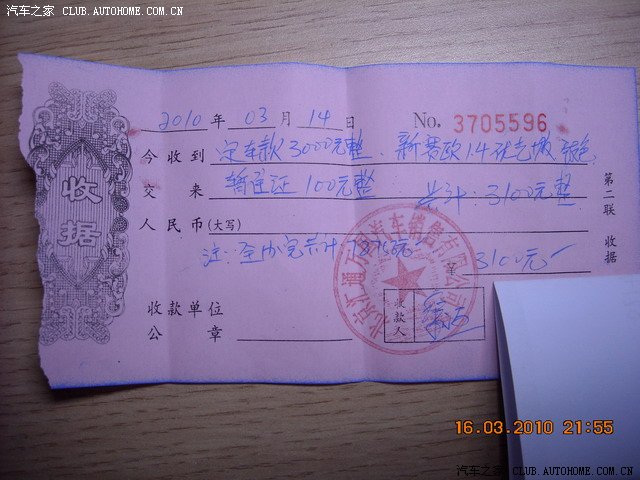 汽车之家 CLUB.AUTOHOME.COM.CN
2010 年 03 月 14 日 No. 3705596
今收到 定车款3000元整、新赛欧1.4 银色
交来 暂住证100元整 共计:3100元整
人民币(大写)
注:全办完共计
¥ 3100元
收款单位
公章
收款人
收据
第二联 收据
16.03.2010 21:55
汽车之家 CLUB.AUTOHOME.COM.CN